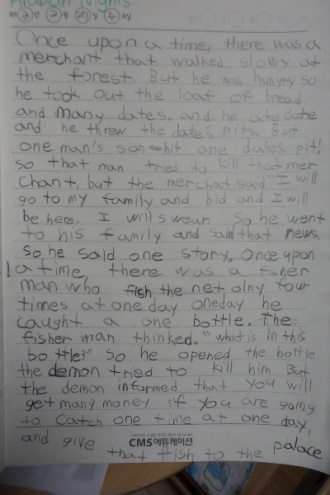 Arabian Nights
Once upon a time, there was a
merchant that walked slowly at
the forest. But he was hungry so
he took out the loaf of bread
and many dates. and he ate date
and he threw the date's pits. But
one man's son hit one date's pit,
so that man tried to kill that mer
chant, but the merchat said "I will
go to my family and bid and I will
be here. I will swear. So he went
to his family and said that news.
So he said one story. Once upon
a time, there was a fisher
man who fish the net olny four
times at one day oneday he
caught a one bottle. The
fisher man thinked. "what is in this
bottle?" So he opened the bottle
the demon tried to kill him But
the demon informed that you will
get many money if you are going
to catch one time at one day,
and give
CMS에듀케이션
that fish to the palace